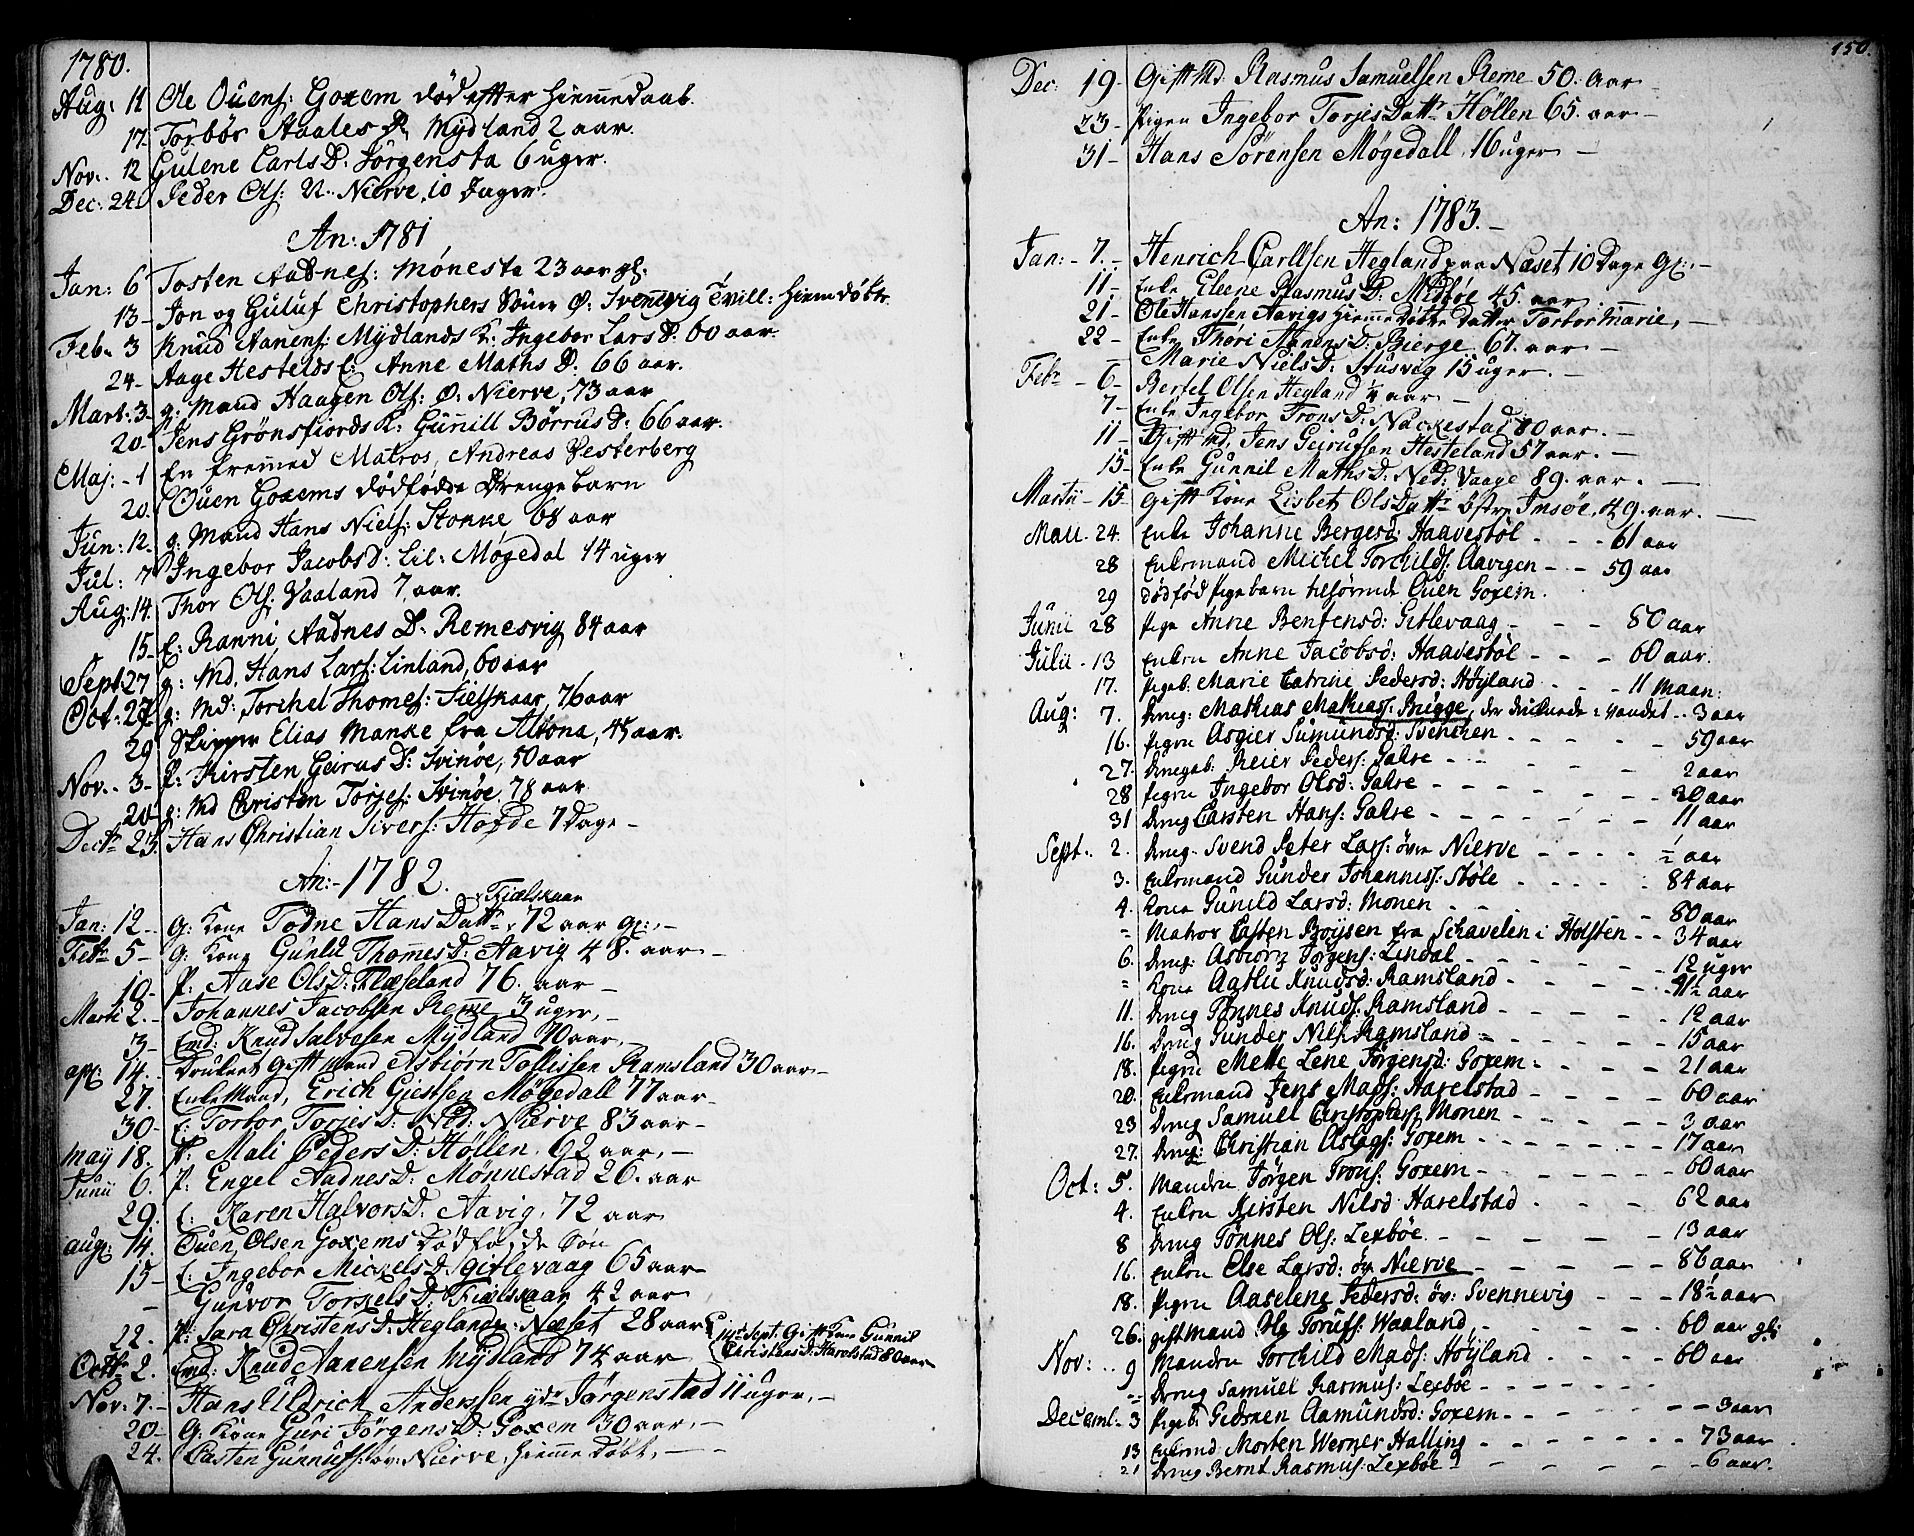 1780.
Aug: 11 Ole Ouens: Goxem død efter hiemmedaab.
17- Torbør Aaales D. Mydland 2 aar.
Nov: 12 Gulene Carls D: Jörgensta 6 uger.
Dec: 24. Peder Ols: N. Nierve, 10 Dager.
An: 1781
Jan: 6 Tosten Aadnes: Mönesta 23 aar gl:
13- Jon og Guluf Christophers Sönner Ø: Svennevig Tvill: hiemdøbte.
Feb: 3 Knud Aanens: Mydlands K: Ingebor Lars D: 60 aar.
24- Aage Hestelds E: Anne Maths D. 66 aar.
Mart: 3- g: Mand Haagen Ols: Ø: Nierve, 73 aar
20- Jens Grönsfiords K: Gunnill Börrus D: 66 aar.
Maj: -1 En fremmed Matros, Andreas Vesterberg
20. Ouen Goxems dödfödde Drengebarn
Jun: 12- g: Mand Hans Niels: Stokke 68 aar
Jul: 7 Ingebor Jacobsd: Lil: Møgedal 14 uger
Aug: 14. Thor Ols: Vaaland 7 aar.
15- E: Ranni Aadnes D: Remesvig 84 aar
Sept 27 g: Md. Hans Lars: Linland, 60 aar
Oct: 27 g: Md: Torchel Thomes: Fielskaar, 76 aar
29 Skipper Elias Manke fra Altona, 45 aar.
Nov. 3- P: Kirsten Geirus D: Svinøe, 50 aar
20- g: Md Christen Torjes: Svinøe. 78 aar
Decbr 23. Hans Christian Sivers: Hofde 7 Dage -
An:- 1782.
Jan: 12- G: Kone Todne Hans Dattr, Fielskaar 72 aar gl:,-
Febr 5- G: Kone Gunild Thommes D: Aavig 48. aar -
10- P: Aase Ols D: Flæseland 76. aar -
Marti 2. - Johannes Jacobsen Remme 3 uger, -
3- Emd: Knud Salvesen Mydland 70 aar, -
apr: 14. - Druknet Gift Mand Asbiørn Tollissen Ramsland 30 aar -
27. Enke Mand, Erich Giertsen Møgedall 77 aar -
30- E: Torbor Torjes D: Ned: Nierve 83 aar -
Maij 18. P: Mali Peders D: Höllen, 62 aar, -
Junii 6. P: Engel Aadnes D: Mönnestad 26. aar
29. E: Karen Halvors D: Aavig, 72 aar
aug: 14. Ouen Olsen Goxems Dødfødde Søn
15- E: Ingebor Mickels D: Gitlevaag 65 aar -
- Gunvor Torkels D Fielskaar 42 aar
22. P: Sara Christens D: Hegland, Næset 28 aar
14de Sept: Gift Kone Gunnil
Christens D: Harelstad 80 aar
Octbr 2. Emd: Knud Aanensen Mydland 74 aar
Nov: 7- Hans Uldrich Anderssen ydr Jörgenstad 11 uger, -
20- G: Kone Guri Jörgens D: Goxem 30 aar, -
24. Casten Gunnufs: öv: Nierve, hiemme Døbt, -
150.
Dec: 19- Gift Md. Rasmus Samuelsen Reme 50. aar -
23- Pigen Ingebor Torjes Dattr Höllen 65. aar -
31- Hans Sörensen Møgedall, 16 uger -
An: 1783. -
Jan: - 7. - Henrich Carllsen Hegland paa Næset 10 Dage gl:, -
11- Enke Eleene Rasmus D: Midbøe 45. aar
21- Ole Hanssen Aavigs hiemmedøbte datter Torbor Marie, -
22- Enke Thöri Aanens D: Bierge 67. aar -
- Marie Niels D: Husvig 15 uger. -
Febr - 6- Bertel Olsen Hegland 1/4 aar -
7- Enke Ingebor Trons D: Nackestad 80 aar. -
11- Gift Md. Jens Gurufsen Hesteland 57 aar. -
15- Enke Gunnil Maths D: Ned: Vaage 89. aar. -
Martii - 15- Gift Kone Lisbet Ols Dattr östre Imsöe, 49. aar. -
Maii. 24. Enke Johanne Bergersd: Haavestöl - - - 61 aar
28 Enkemand Michel Torchilds: Aavigen - - 59 aar
29 Dödfød Pigebarn tilhörende Ouen Goxem.
Junii 28 Pige Anne Bentensd: Gitlevaag - - - 80 aar
Julii - 13 Enken Anne Jacobsd: Haavestöl - - - 60 aar.
17. Pigeb: Marie Catrine Pedersd: Høyland - - - 11 Maan:
Aug: 7. Dreng: Mathias Mathiass: Brigge, der druknede i Vandet - - 3 aar
16. Pigen Asgier Sumundsd: Svenchen - - - - - 59 aar
27. Drengeb: Reier Peders: Sahre - - - - 2 aar
28 Pigen Ingebor Olsd: Sahre - - - - - 20 aar
31 Dreng Carsten Hans: Sahre - - - - - 11 aar
Sept:. 2. Dreng: Svend Peter Lars: övre Nierve - - - - 1/2 aar
3. Enkemand Gunder Johanniss: Støle - - - - 84 aar
4. Kone Gunild Larsd: Monen - - - - - 80 aar
= Matros Casten Boijsen fra Schavelen i Holsten - - 34 aar
6. Dreng: Asbiörn Jörgens: Lindal - - - - - 12 uger
= Kone Aasllu Knudsd: Ramsland - - - - - 41 1/2 aar
11. Dreng Tönnes Knuds: Ramsland - - - - - 12 aar
16. Dreng Gunder Nils: Ramsland - - - - - 15 aar
18. Pigen Mette Lene Jörgensd: Goxem - - - - 21 aar
20. Enkemand Jens Mads: Harelstad - - - - 60 aar
23 Dreng Samuel Christophers: Monen - - - - 3 aar
27. Dreng: Christian Aslags: Goxem - - - - - 17 aar
Oct: 5. Manden Jörgen Trons: Goxem - - - - - 60 aar
4. Enken Kirsten Nilsd: Harelstad - - - - 62 aar
8 Dreng Tönnes Ols: Lexböe - - - - - 13 aar
16. Enken Else Larsd: öv: Nierve - - - - - 86 aar
18. Pigen Aaselene Pedersd: öv: Svennevig - - - 18 1/2 aar
26. gift Mand Ole Torufs: Waaland - - - - 60 aar gl:
Nov: . . 9 Manden Torchild Mads: Höyland - - - - 60 aar
= Dreng Samuel Rasmus: Lexböe - - - - - -
Decembr - 3 Pigeb: Gedsken Aamundsd: Goxem - - - - 3 aar
13 Enkemd Morten Werner Halling - - - - - 73 aar
21 Dreng Bernt Rasmus: Lexböe - - - - - 6 aar.